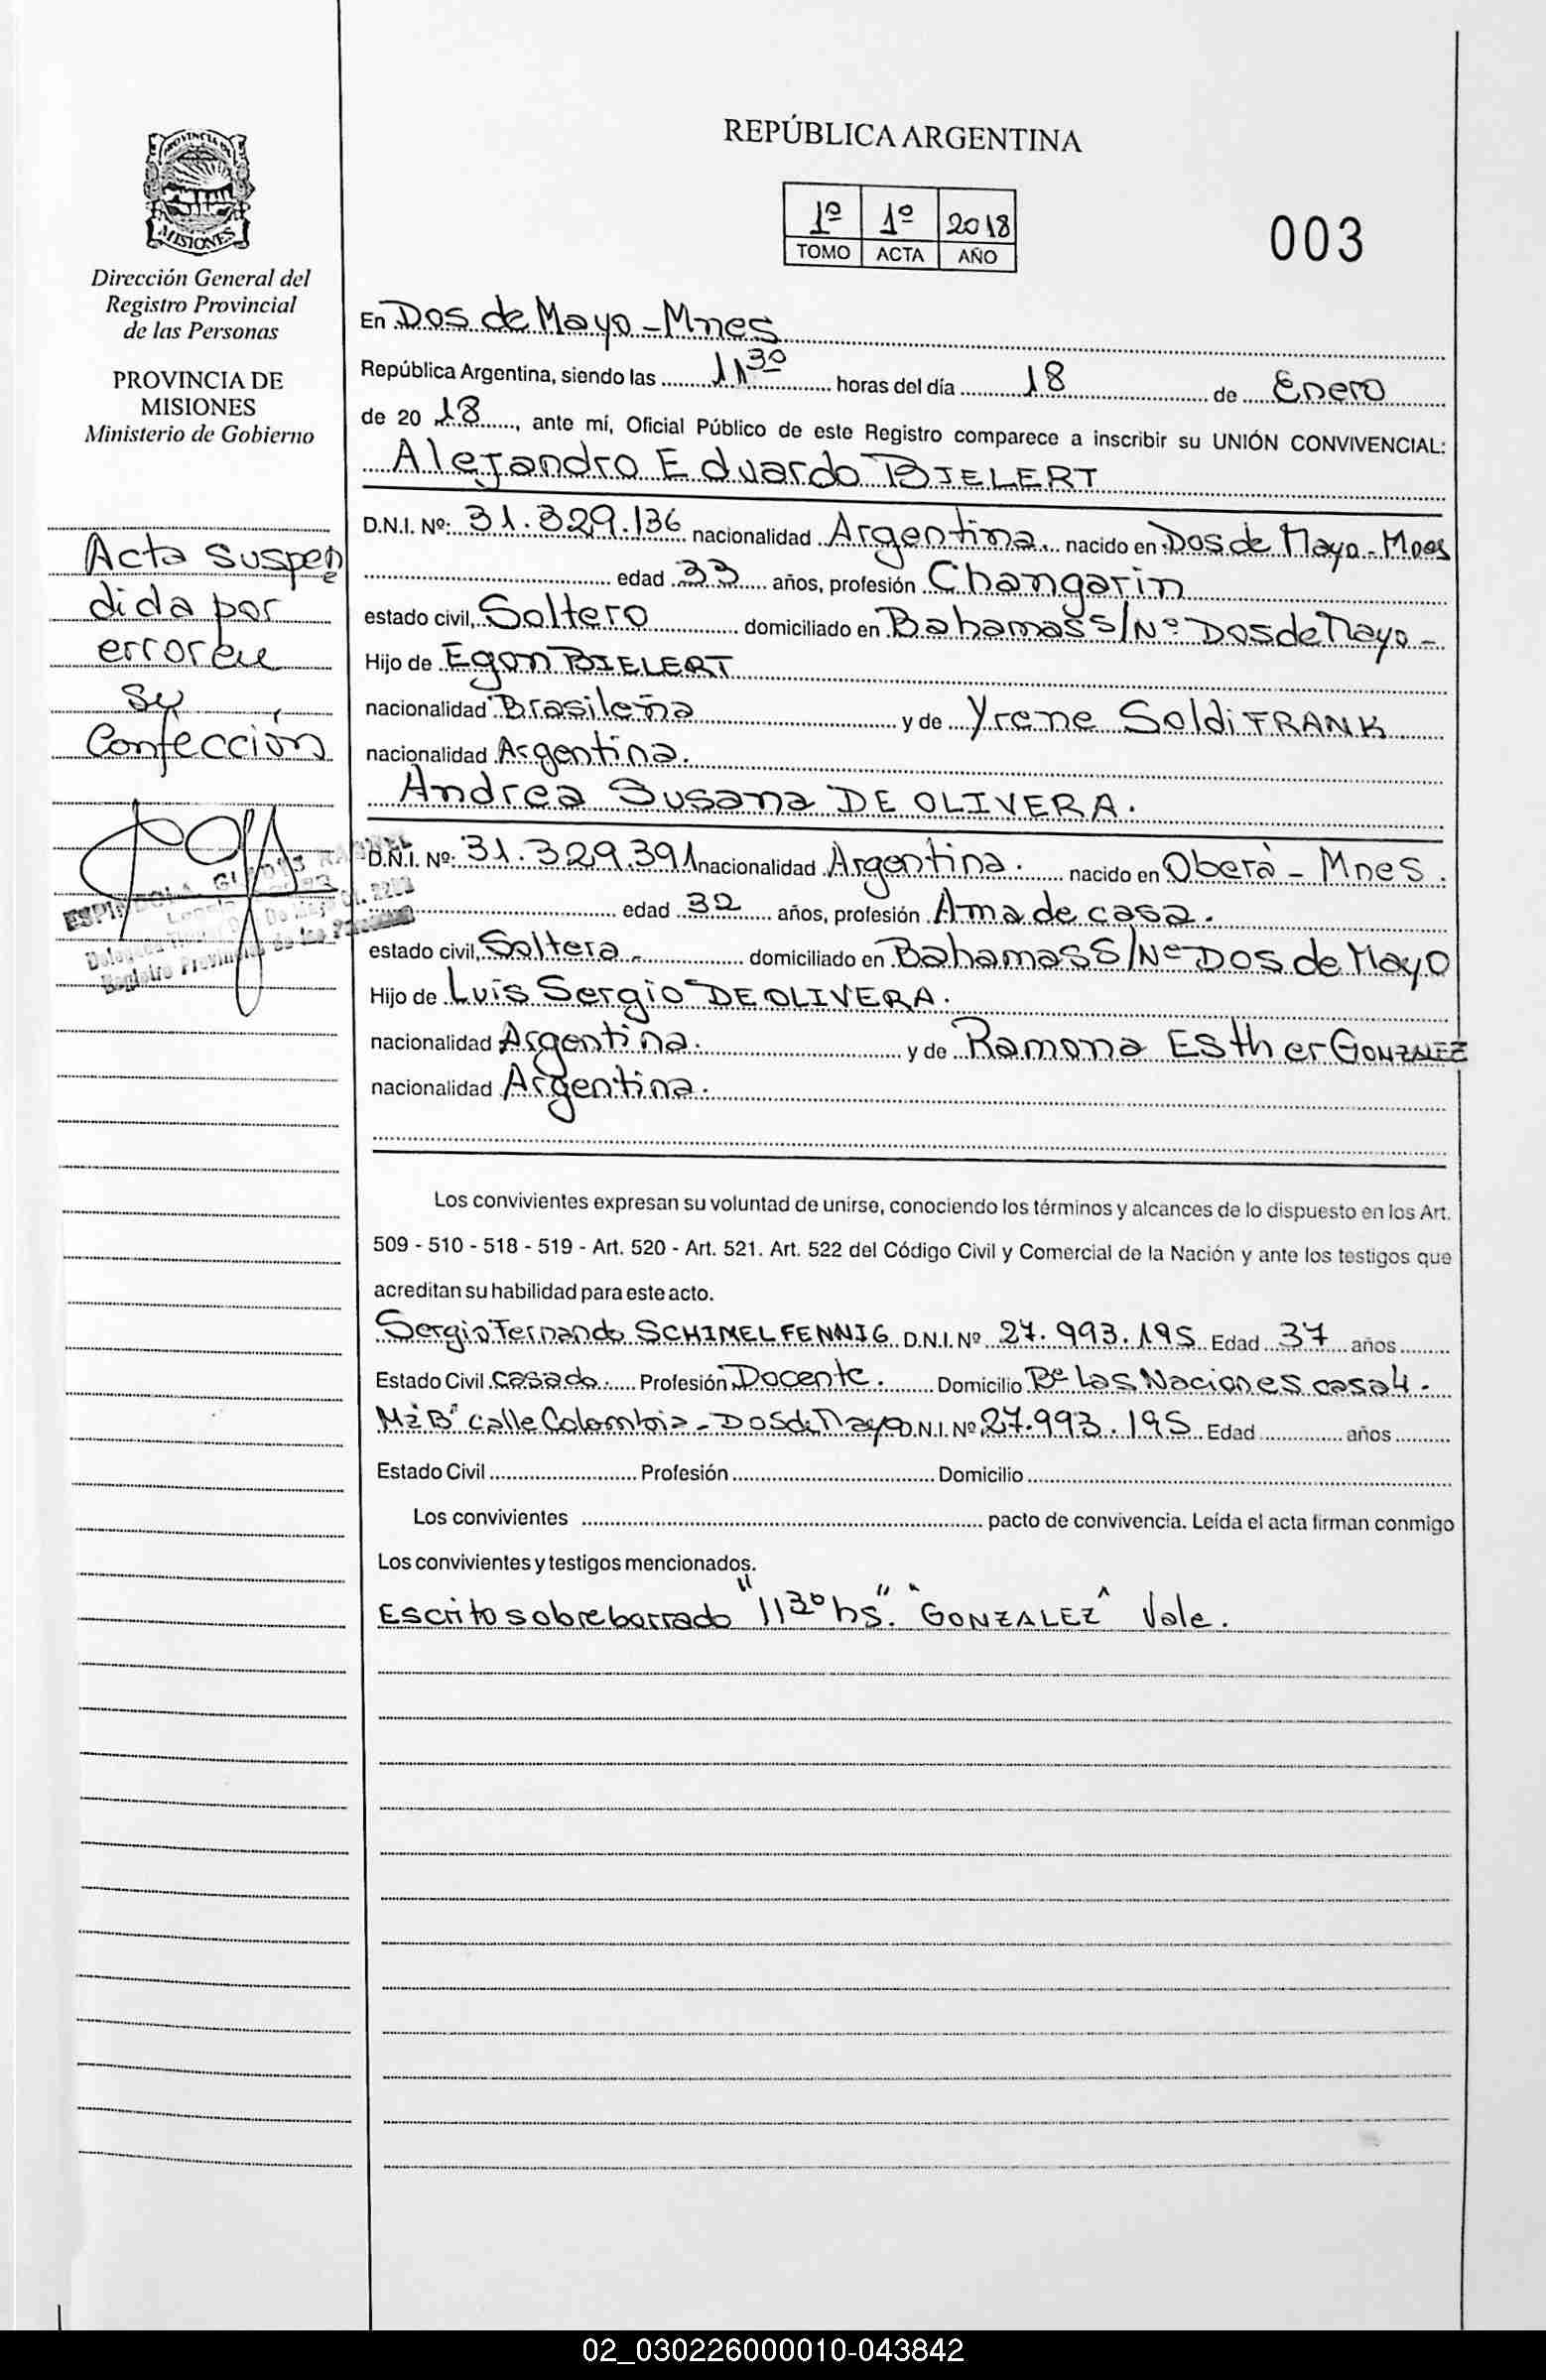 REPÚBLICA ARGENTINA
1º 1º 2018
TOMO ACTA AÑO
003
PROVINCIA DE
MISIONES
Dirección General del
Registro Provincial
de las Personas
PROVINCIA DE
MISIONES
Ministerio de Gobierno
Acta suspen
dida por
error en
su
Confección
Registro Provincial de las Personas
En Dos de Mayo - Mnes
República Argentina, siendo las 11 30 horas del día 18 de Enero
de 20 18, ante mí, Oficial Público de este Registro comparece a inscribir su UNIÓN CONVIVENCIAL:
Alejandro Eduardo BIELERT
D.N.I. Nº: 31.329.136 nacionalidad Argentina. nacido en Dos de Mayo - Mnes
edad 33 años, profesión Changarin
estado civil, Soltero domiciliado en Bahamas S/Nº Dos de Mayo -
Hijo de Egon BIELERT
nacionalidad Brasileña y de Yrene Soldi FRANK
nacionalidad Argentina.
Andrea Susana DE OLIVERA.
D.N.I. Nº: 31.329.391 nacionalidad Argentina. nacido en Oberà - Mnes.
edad 32 años, profesión Ama de casa.
estado civil, Soltera. domiciliado en Bahamas S/Nº Dos de Mayo
Hijo de Luis Sergio DE OLIVERA.
nacionalidad Argentina. y de Ramona Esther GONZALEZ
nacionalidad Argentina.
Los convivientes expresan su voluntad de unirse, conociendo los términos y alcances de lo dispuesto en los Art.
509 - 510 - 518 - 519 - Art. 520 - Art. 521. Art. 522 del Código Civil y Comercial de la Nación y ante los testigos que
acreditan su habilidad para este acto.
Sergio Fernando SCHIMELFENNIG D.N.I. Nº 27.993.195 Edad 37 años
Estado Civil casado. Profesión Docente. Domicilio Bº Las Naciones casa 4.
Mz "B" calle Colombia - Dos de Mayo D.N.I. Nº 27.993.195 Edad años
Estado Civil Profesión Domicilio
Los convivientes pacto de convivencia. Leída el acta firman conmigo
Los convivientes y testigos mencionados.
Escrito sobreborrado "11 30 hs". "GONZALEZ" Vale.
02_030226000010-043842